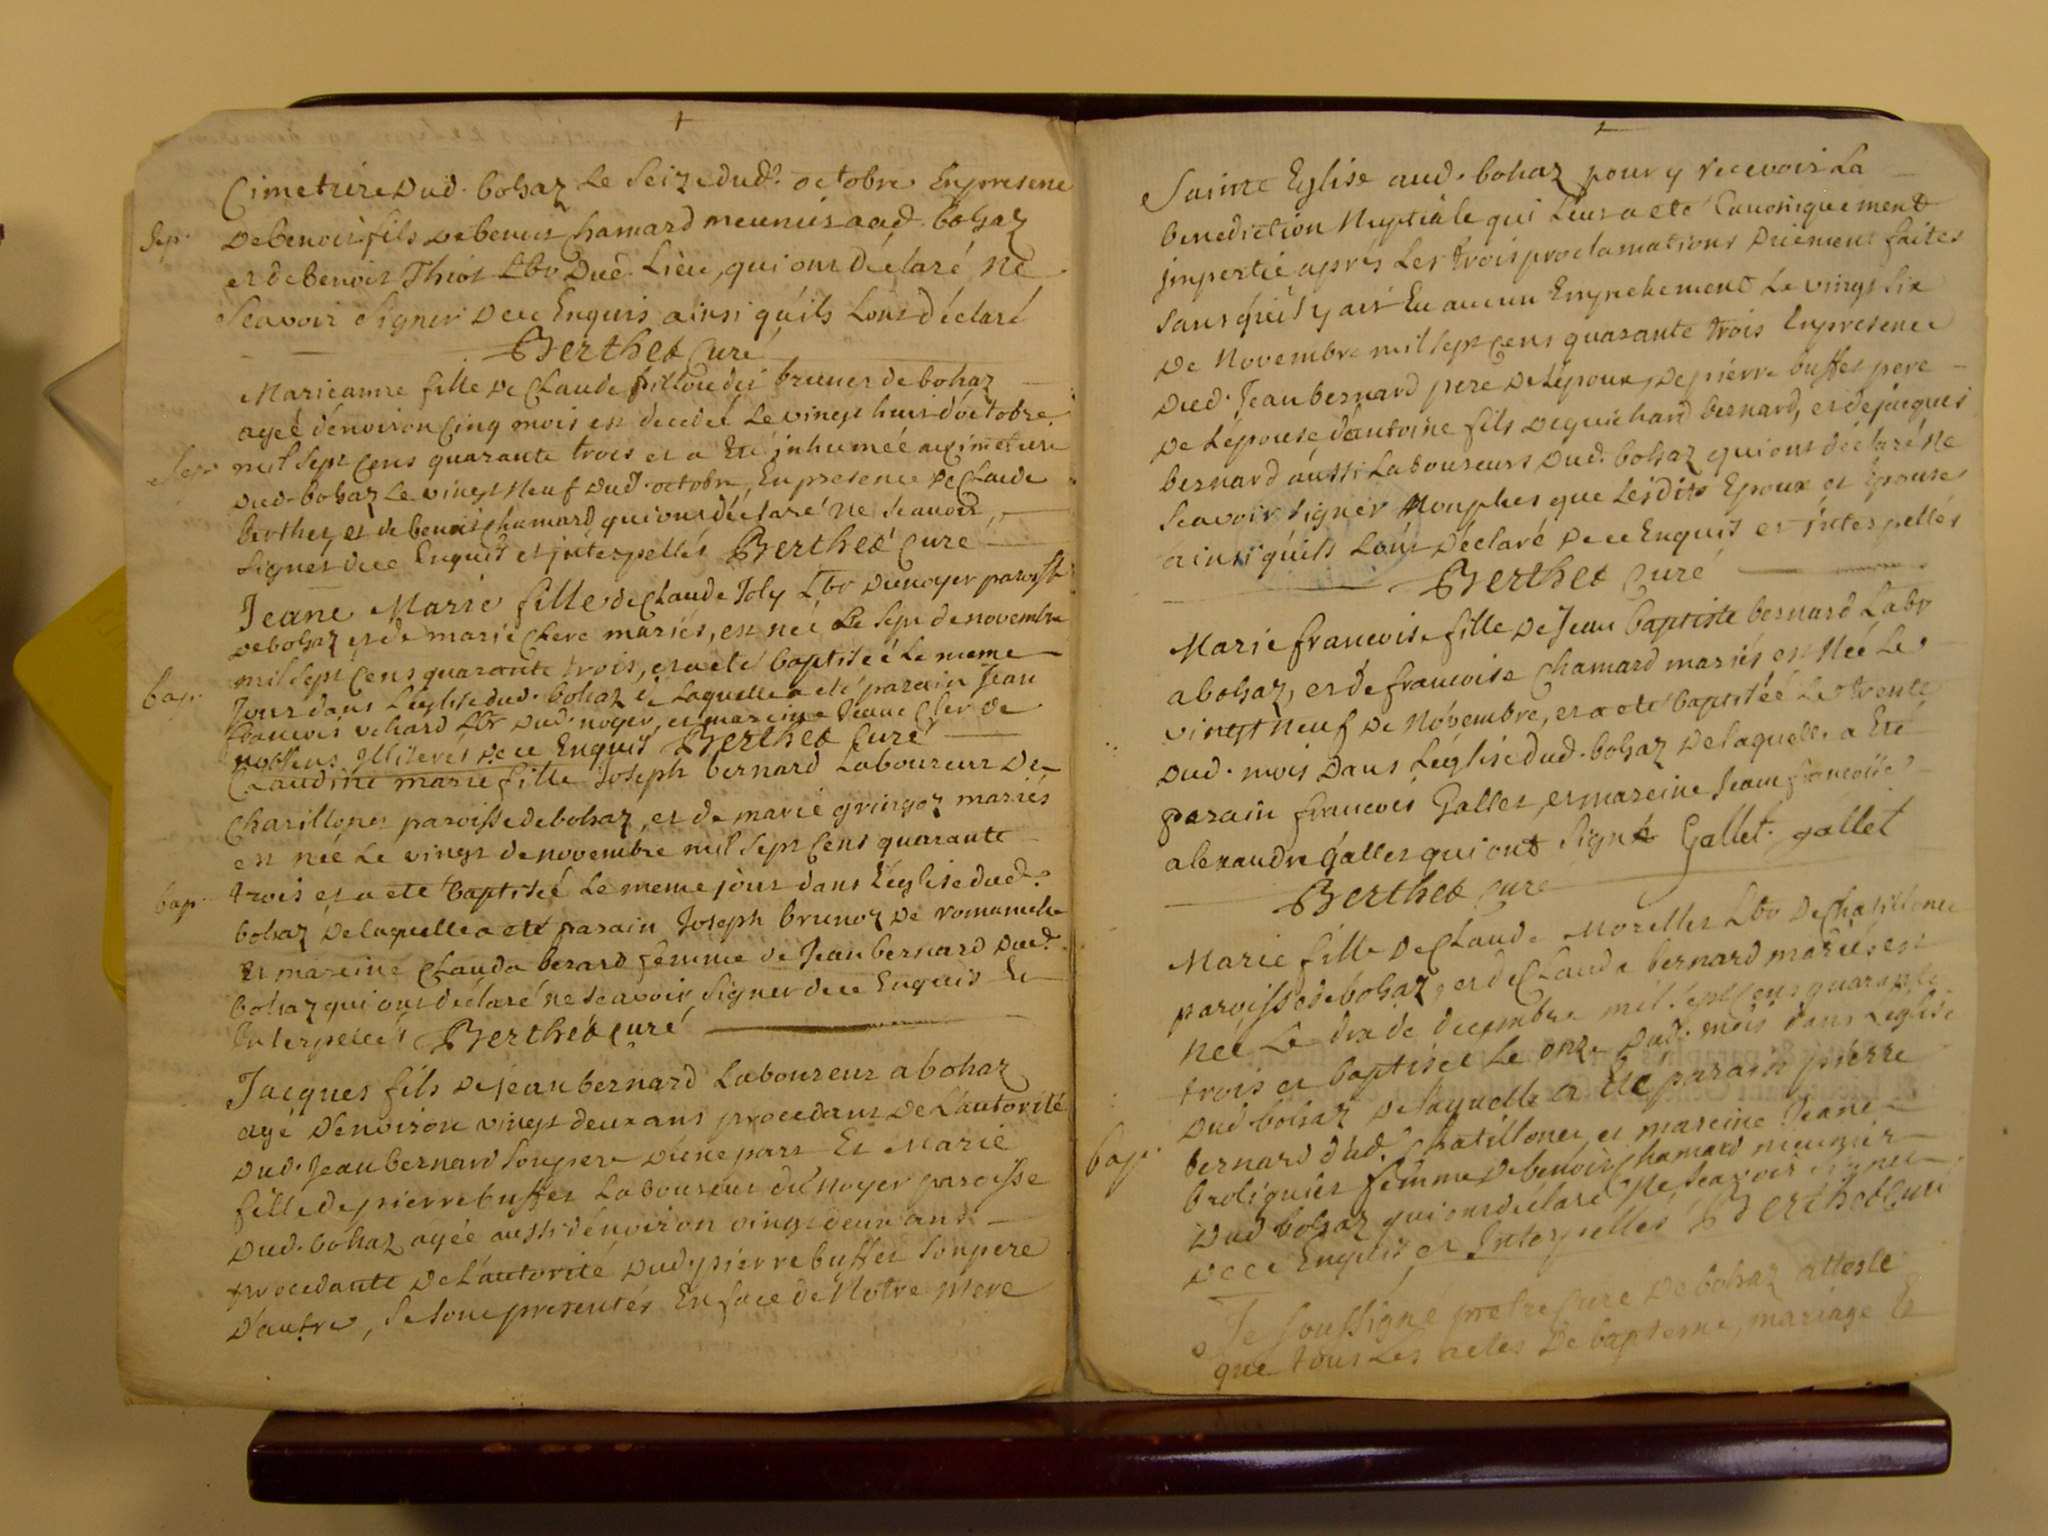 Cimetiere dud. bohaz Le Seize dud. octobre En presence
Sep. De benoit fils de benoit Chamard meunier aud. bohaz
et de benoit Thiot Lbr dud. Lieu, qui ont déclaré ne
Scavoir Signer de ce Enquis ainsi quils Lont déclaré
Berthet Curé
Marieanne fille de Claude bruner de bohaz
ageé d'environ Cinq mois est decedeé Le vingt huit d'octobre
Sep. mil Sept Cens quarante trois et a Eté inhumeé au cimetiere
dud. bohaz Le vingt Neuf dud. octobre, En presence De Claude
berthet, et de benoit Chamard qui ont déclaré ne Scavoir
Signer de ce Enquis et interpellés Berthet Curé
Jeane Marie fille de Claude Joly Lbr du noyer paroisse
de bohaz et de marie Clere mariés, est neé Le Sept de novembre
mil Sept Cens quarante trois, et a eté baptiseé Le meme
bap. Jour dans L'église dud. bohaz de Laquelle a eté parain Jean
francois vehard Lbr dud. noyer, et mareine Jeane Cler de
Illiteres de ce Enquis Berthet Curé
Claudine marie fille Joseph bernard Laboureur de
Charillones paroisse de bohaz, et de marie gringoz mariés
est neé Le vingt de novembre mil Sept Cens quarante
bap. trois et a eté baptiseé Le meme jour dans L'église dud.
bohaz de laquelle a eté parain Joseph brunoz de romaneche
et mareine Clauda berard femme de Jean bernard dud.
bohaz qui ont déclaré ne Scavoir Signer de ce Enquis Et
Interpelés Berthet Curé
Jacques fils de Jean bernard Laboureur a bohaz
agé d'environ vingt deux ans procedant de L'autorité
dud. Jean bernard Son pere d'une part Et Marie
fille de pierre buffet Laboureur du noyer paroisse
dud. bohaz ageé aussi d'environ vingt deux ans
procedante de L'autorité dud pierre buffet Son pere
D'autre, Se sont presentés En face de Notre mere
Sainte Eglise aud. bohaz pour y recevoir La
benediction Nuptiale qui Leur a eté Canoniquement
impertie aprés Les trois proclamations duement faites
Sans qu'il y ait Eu aucun Empechement Le vingt Six
De Novembre mil Sept Cens quarante trois En presence
dud. Jean bernard pere de L'epoux, De pierre buffet pere
De L'épouse d'antoine fils de guichard bernard, et de jacques
bernard aussi Laboureurs dud. bohaz qui ont déclaré ne
Scavoir Signer Non plus que Lesdits Epoux et Epouse
ainsi quils Lont déclaré De ce Enquis et interpellés
Berthet Curé
Marie francoise fille de Jean baptiste bernard Labr
a bohaz, et de francoise Chamard mariés est Neé Le
vingt Neuf De Novembre, et a eté baptiseé Le trente
dud. mois Dans L'église dud. bohaz de laquelle a Eté
parain francois Gallet, et mareine Jeane francoise
alexandre gallet qui ont Signé Gallet gallet
Berthet Curé
Marie fille de Claude Morellet Lbr de Chatillonet
paroisse de bohaz, et de Clauda bernard mariés est
Neé Le dix de decembre mil Sept Cens quarante
trois et baptiseé Le onze dud. mois dans L'eglise
dud bohaz de laquelle a eté parain pierre
bap. bernard dud. Chatillonet, et mareine Jeane
broliquier femme de benoit Chamard meunier
dud bohaz qui ont déclaré Ne Scavoir Signer
De ce Enquis, et Interpellés Berthet Curé
Je Soussigné pretre Curé de bohaz atteste
que tous Les actes De bapteme, mariage Et